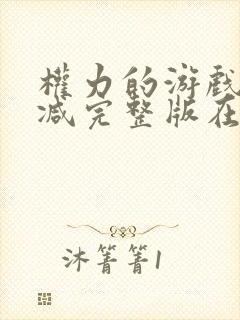 權力的游戲
减完整版在
沐箐箐1